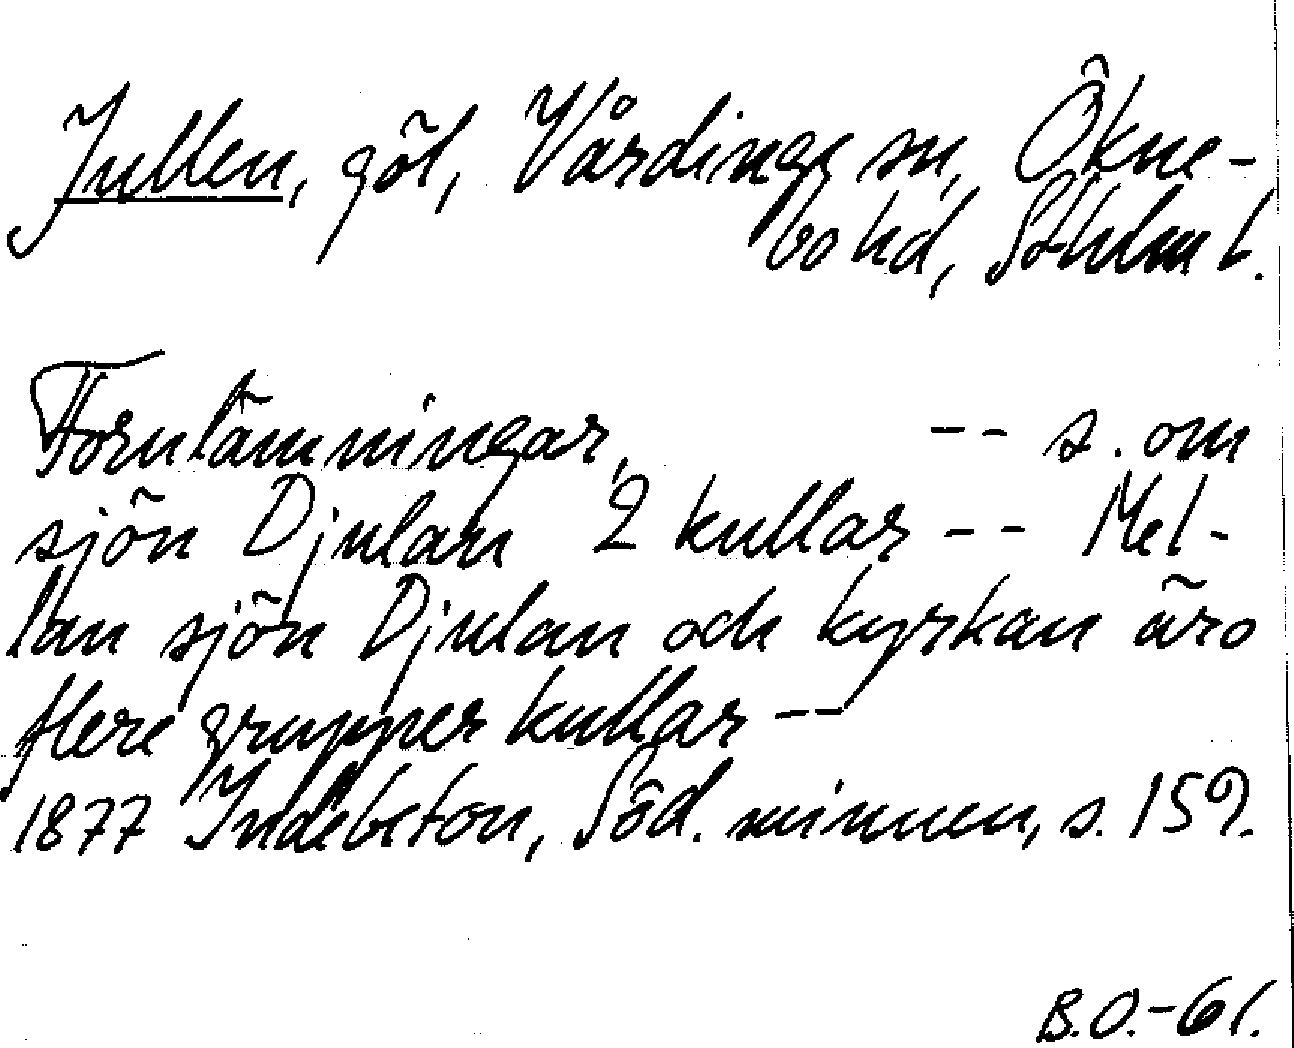 Jullen, göl, Vårdinge sn, Ökne-
bo hd, Sthlm l.
Fornlämningar, -- s. om
sjön Djulan 2 kullar -- Mel-
lan sjön Djulan och kyrkan äro
flere grupper kullar --
1877 Indebetou, Söd. minnen, s. 159.
B.O.-61.